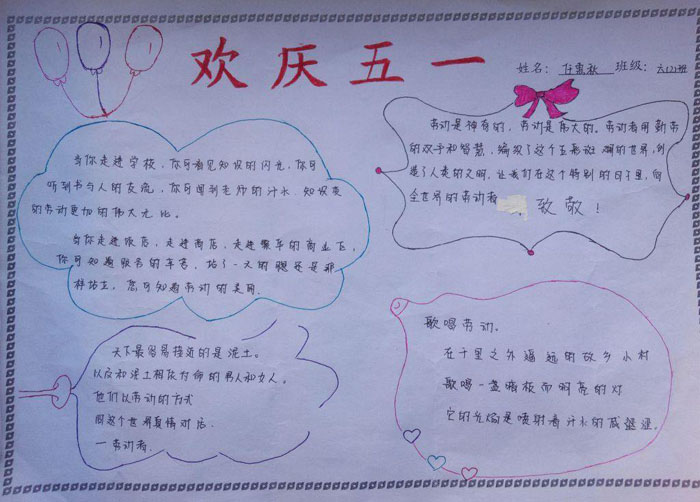 欢庆五一
姓名：任惠秋 班级：六(2)班
当你走进学校，你可看见知识的闪光，你可
听到书与人的交流，你可闻到老师的汗水，知识类
的劳动更加的伟大无比。
当你走进饭店，走进商店，走进繁华的商业区，
你可知道服务的辛苦，站了一天的腿还是那
样站立，您可知道劳动的美丽。
劳动是神奇的，劳动是伟大的。劳动者用勤劳
的双手和智慧，编织了这个五彩斑斓的世界，创
造了人类的文明。让我们在这个特别的日子里，向
全世界的劳动者 致敬！
天下最容易接近的是泥土。
以及和泥土相依为命的男人和女人。
他们以劳动的方式
同这个世界真情对话
一劳动者
歌唱劳动。
在千里之外遥远的故乡小村
歌唱一盏瘦松而明亮的灯
它的光焰是喷射着汗水的咸涩湿。